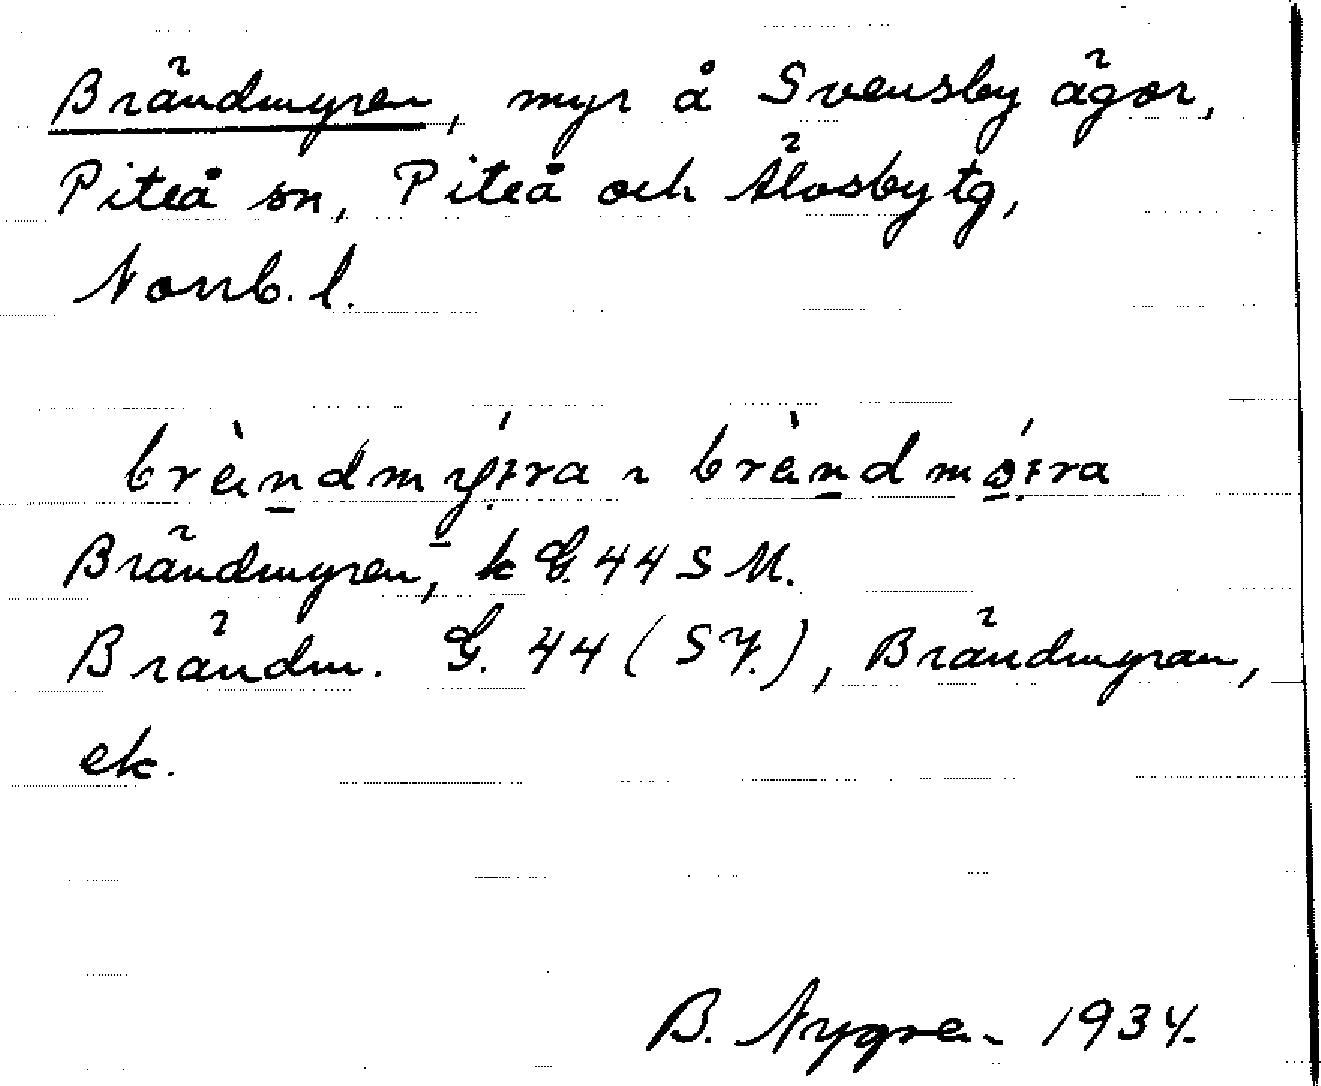 Brändmyren, myr å Svensby ägor,
Piteå sn, Piteå och Älvsby tg,
Norrb. l.
brèi̠ndmý̠ra ~ brèi̠ndmǿ̠ra
Brändmyren, k G. 44 S M.
Brändm. G. 44 (SY.), Brändmyran,
ek.
B. Nygren 1934.